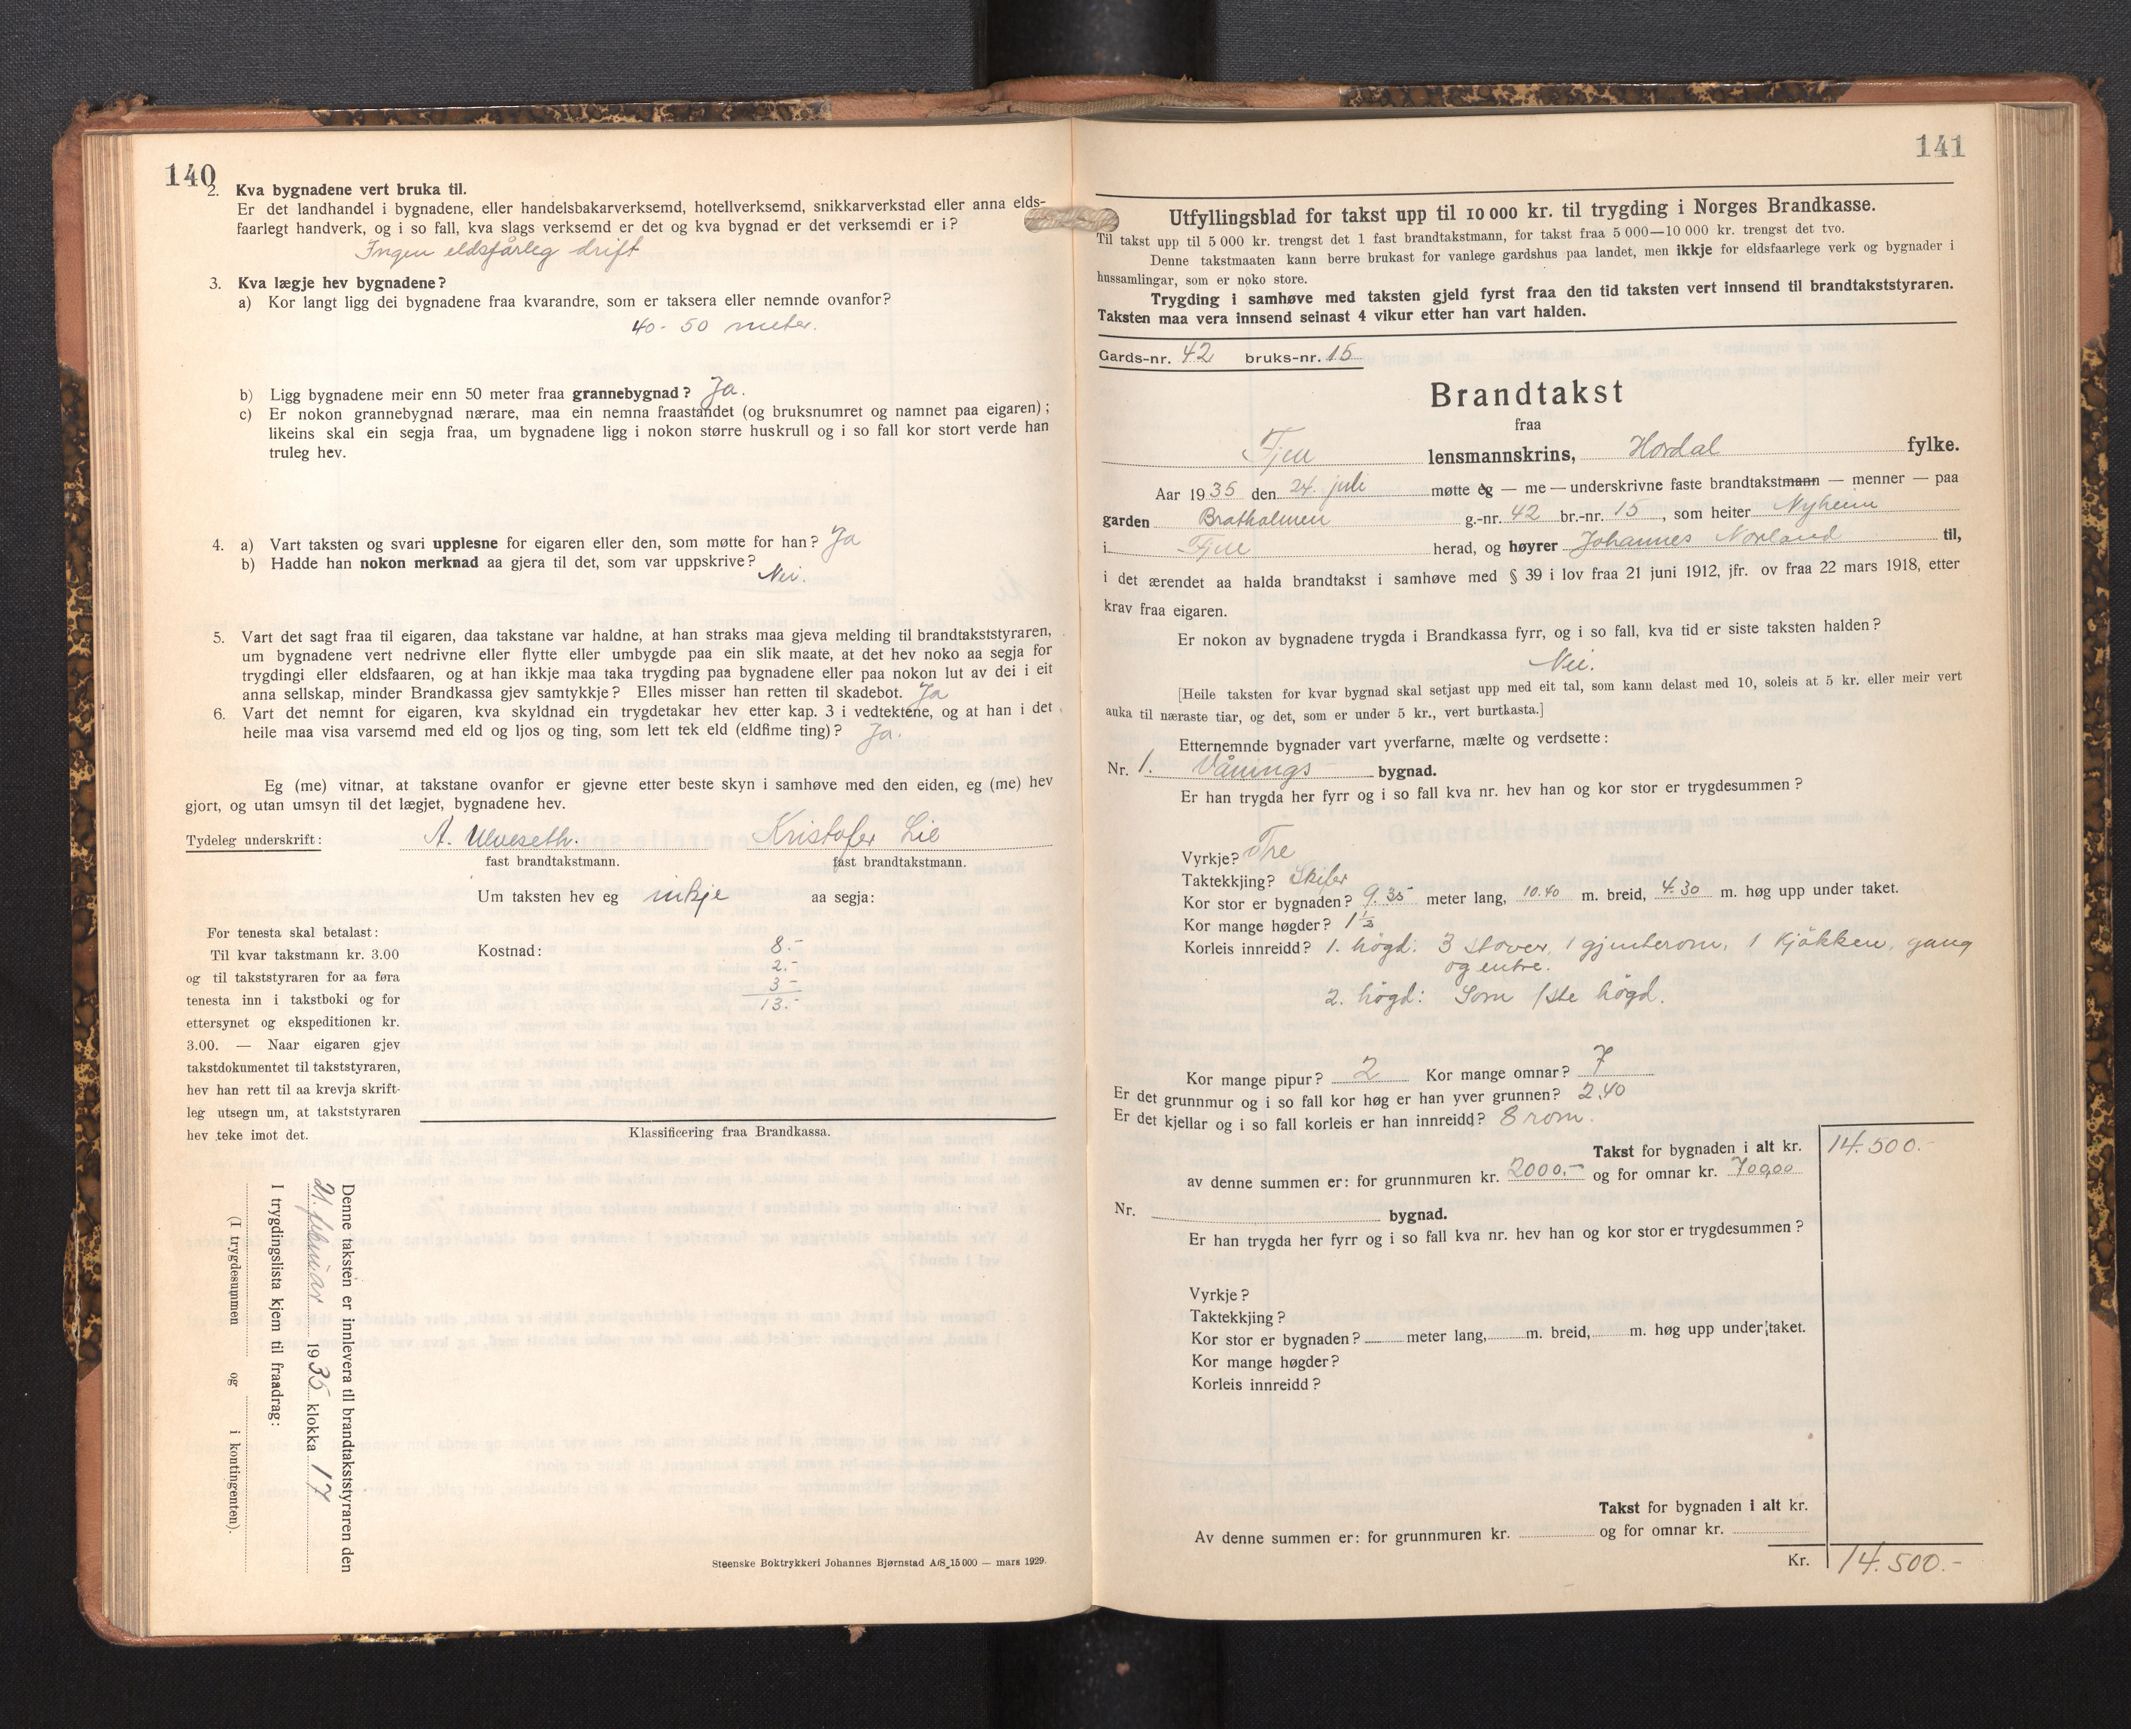 140
2. Kva bygnadene vert bruka til.
Er det landhandel i bygnadene, eller handelsbakarverksemd, hotellverksemd, snikkarverkstad eller anna elds-
faarlegt handverk, og i so fall, kva slags verksemd er det og kva bygnad er det verksemdi er i?
Ingen eldsfårleg drift
3. Kva lægje hev bygnadene?
a) Kor langt ligg dei bygnadene fraa kvarandre, som er taksera eller nemnde ovanfor?
40-50 meter.
b) Ligg bygnadene meir enn 50 meter fraa grannebygnad? Ja.
c) Er nokon grannebygnad nærare, maa ein nemna fraastandet (og bruksnumret og namnet paa eigaren);
likeins skal ein segja fraa, um bygnadene ligg i nokon større huskrull og i so fall kor stort verde han
truleg hev.
4. a) Vart taksten og svari upplesne for eigaren eller den, som møtte for han? Ja
b) Hadde han nokon merknad aa gjera til det, som var uppskrive?
Nei.
5. Vart det sagt fraa til eigaren, daa takstane var haldne, at han straks maa gjeva melding til brandtakststyraren,
um bygnadene vert nedrivne eller flytte eller umbygde paa ein slik maate, at det hev noko aa segja for
trygdingi eller eldsfaaren, og at han ikkje maa taka trygding paa bygnadene eller paa nokon lut av dei i eit
anna sellskap, minder Brandkassa gjev samtykkje? Elles misser han retten til skadebot. Ja
6. Vart det nemnt for eigaren, kva skyldnad ein trygdetakar hev etter kap. 3 i vedtektene, og at han i det
heile maa visa varsemd med eld og ljos og ting, som lett tek eld (eldfime ting)? Ja.
Eg (me) vitnar, at takstane ovanfor er gjevne etter beste skyn i samhøve med den eiden, eg (me) hev
gjort, og utan umsyn til det lægjet, bygnadene hev.
Tydeleg underskrift: A. Ulveseth. Kristofer Lie
fast brandtakstmann. fast brandtakstmann.
Um taksten hev eg inkje aa segja:
For tenesta skal betalast:
Til kvar takstmann kr. 3.00
og til takststyraren for aa føra
tenesta inn i takstboki og for
ettersynet og ekspeditionen kr.
3.00. — Naar eigaren gjev
takstdokumentet til takststyraren,
hev han rett til aa krevja skrift-
leg utsegn um, at takststyraren
hev teke imot det.
Kostnad: 8.-
2.-
3-
13.-
Klassificering fraa Brandkassa.
Denne taksten er innlevera til brandtakststyraren den
21. februar 1935 klokka 17
I trygdingslista kjem til fraadrag:
(I trygdesummen og i kontingenten).
Steenske Boktrykkeri Johannes Bjørnstad A/S. 15 000 — mars 1929.
141
Utfyllingsblad for takst upp til 10 000 kr. til trygding i Norges Brandkasse.
Til takst upp til 5 000 kr. trengst det 1 fast brandtakstmann, for takst fraa 5 000—10 000 kr. trengst det tvo.
Denne takstmaaten kann berre brukast for vanlege gardshus paa landet, men ikkje for eldsfaarlege verk og bygnader i
hussamlingar, som er noko store.
Trygding i samhøve med taksten gjeld fyrst fraa den tid taksten vert innsend til brandtakststyraren.
Taksten maa vera innsend seinast 4 vikur etter han vart halden.
Gards-nr. 42 bruks-nr. 15
Brandtakst
fraa
Fjell lensmannskrins, Hordal fylke.
Aar 1935 den 24. juli møtte eg — me — underskrivne faste brandtakstmann — menner — paa
garden Bratholmen g.-nr. 42 br.-nr. 15, som heiter Nyheim
i Fjell herad, og høyrer Johannes Norland til,
i det ærendet aa halda brandtakst i samhøve med § 39 i lov fraa 21 juni 1912, jfr. ov fraa 22 mars 1918, etter
krav fraa eigaren.
Er nokon av bygnadene trygda i Brandkassa fyrr, og i so fall, kva tid er siste taksten halden?
Nei.
[Heile taksten for kvar bygnad skal setjast upp med eit tal, som kann delast med 10, soleis at 5 kr. eller meir vert
auka til næraste tiar, og det, som er under 5 kr., vert burtkasta.]
Etternemnde bygnader vart yverfarne, mælte og verdsette:
Nr. 1. Vånings bygnad.
Er han trygda her fyrr og i so fall kva nr. hev han og kor stor er trygdesummen?
Vyrkje? Tre
Taktekkjing? Skifer
Kor stor er bygnaden? 9.35 meter lang, 10.40 m. breid, 4.30 m. høg upp under taket.
Kor mange høgder? 1 ½
Korleis innreidd? 1. högd: 3 stover, 1 gjenterom, 1 kjökken, gang
og entre.
2. högd: Som 1ste högd.
Kor mange pipur? 2 Kor mange omnar? 7
Er det grunnmur og i so fall kor høg er han yver grunnen? 2,40
Er det kjellar og i so fall korleis er han innreidd? 8 rom.
Takst for bygnaden i alt kr. 14.500.-
av denne summen er: for grunnmuren kr. 2000,- og for omnar kr. 700,00
Nr. bygnad.
Er han trygda her fyrr og i so fall kva nr. hev han og kor stor er trygdesummen?
Vyrkje?
Taktekkjing?
Kor stor er bygnaden? meter lang, m. breid, m. høg upp under taket.
Kor mange høgder?
Korleis innreidd?
Takst for bygnaden i alt kr.
Av denne summen er: for grunnmuren kr. og for omnar kr.
Kr. 14.500.-